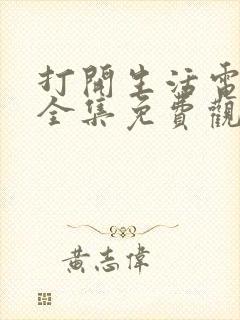 打開生活電
全集免費觀
黃志偉